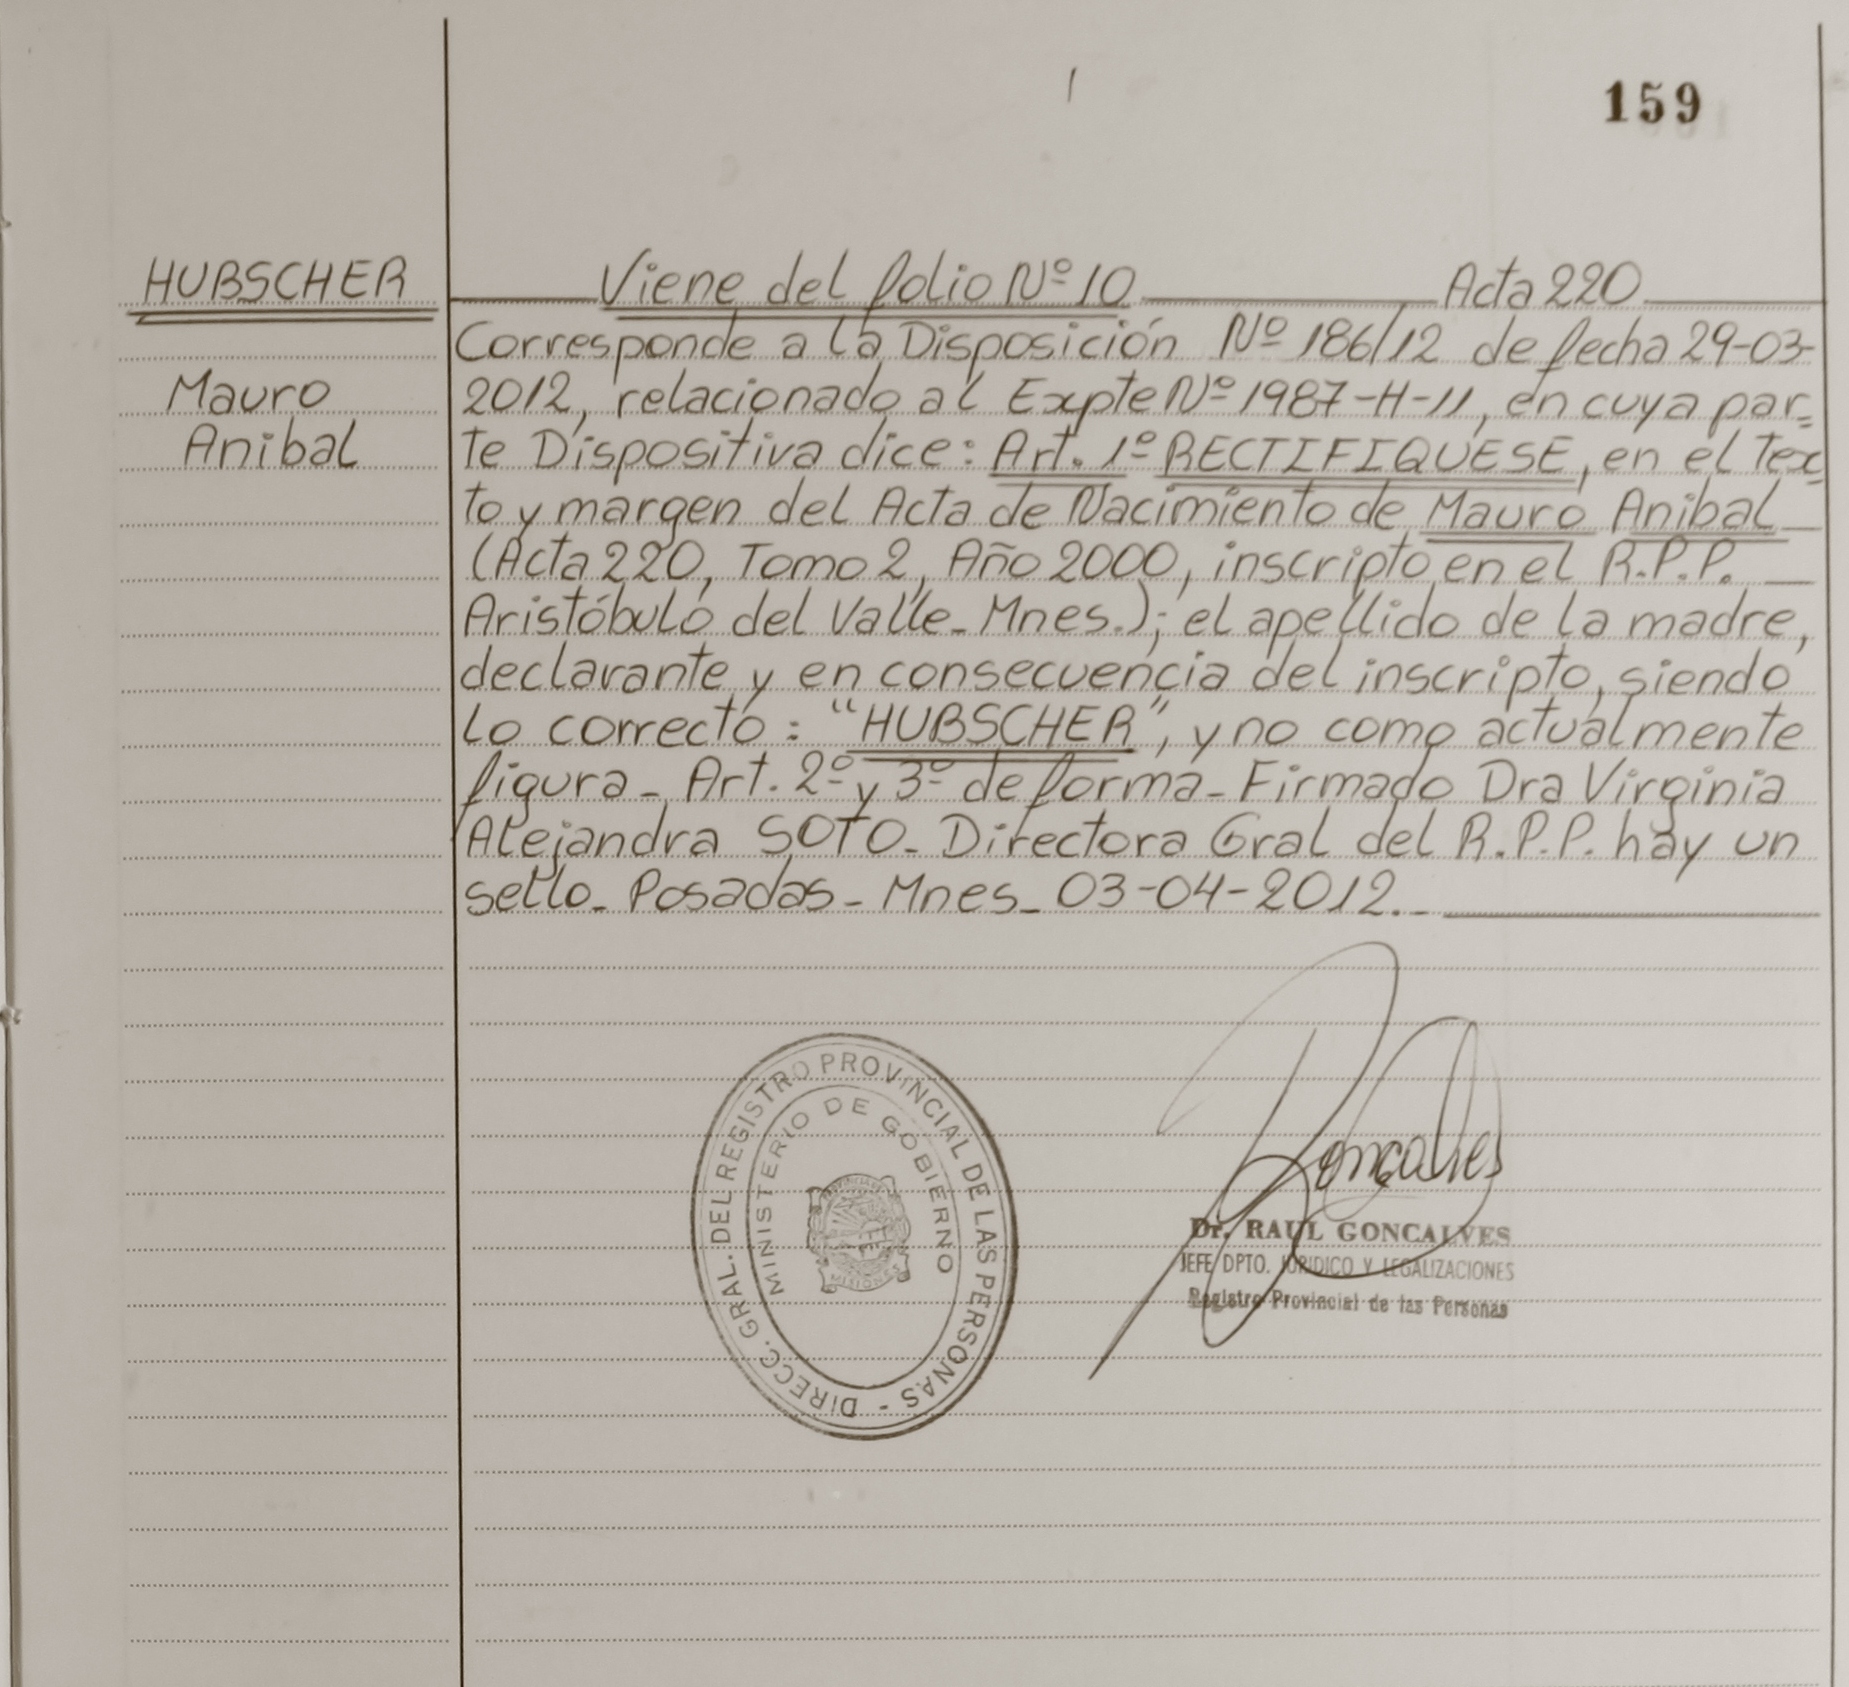 159
HUBSCHER
Mauro
Anibal
Viene del folio Nº 10 Acta 220
Corresponde a la Disposición Nº 186/12 de fecha 29-03-
2012, relacionado al Expte Nº 1987-H-11, en cuya par=
te Dispositiva dice: Art. 1º RECTIFIQUESE, en el Tex=
to y margen del Acta de Nacimiento de Mauro Anibal
(Acta 220, Tomo 2, Año 2000, inscripto en el R.P.P.
Aristóbulo del Valle_ Mnes.); el apellido de la madre,
declarante y en consecuencia del inscripto, siendo
lo correcto: "HUBSCHER", y no como actualmente
figura_ Art. 2º y 3º de forma_ Firmado Dra Virginia
Alejandra SOTO_ Directora Gral del R.P.P. hay un
sello_ Posadas_ Mnes_ 03-04-2012._
DIRECC. GRAL. DEL REGISTRO PROVINCIAL DE LAS PERSONAS -
MINISTERIO DE GOBIERNO
MISIONES
Goncalves
Dr. RAUL GONCALVES
JEFE DPTO. JURIDICO Y LEGALIZACIONES
Registro Provincial de las Personas